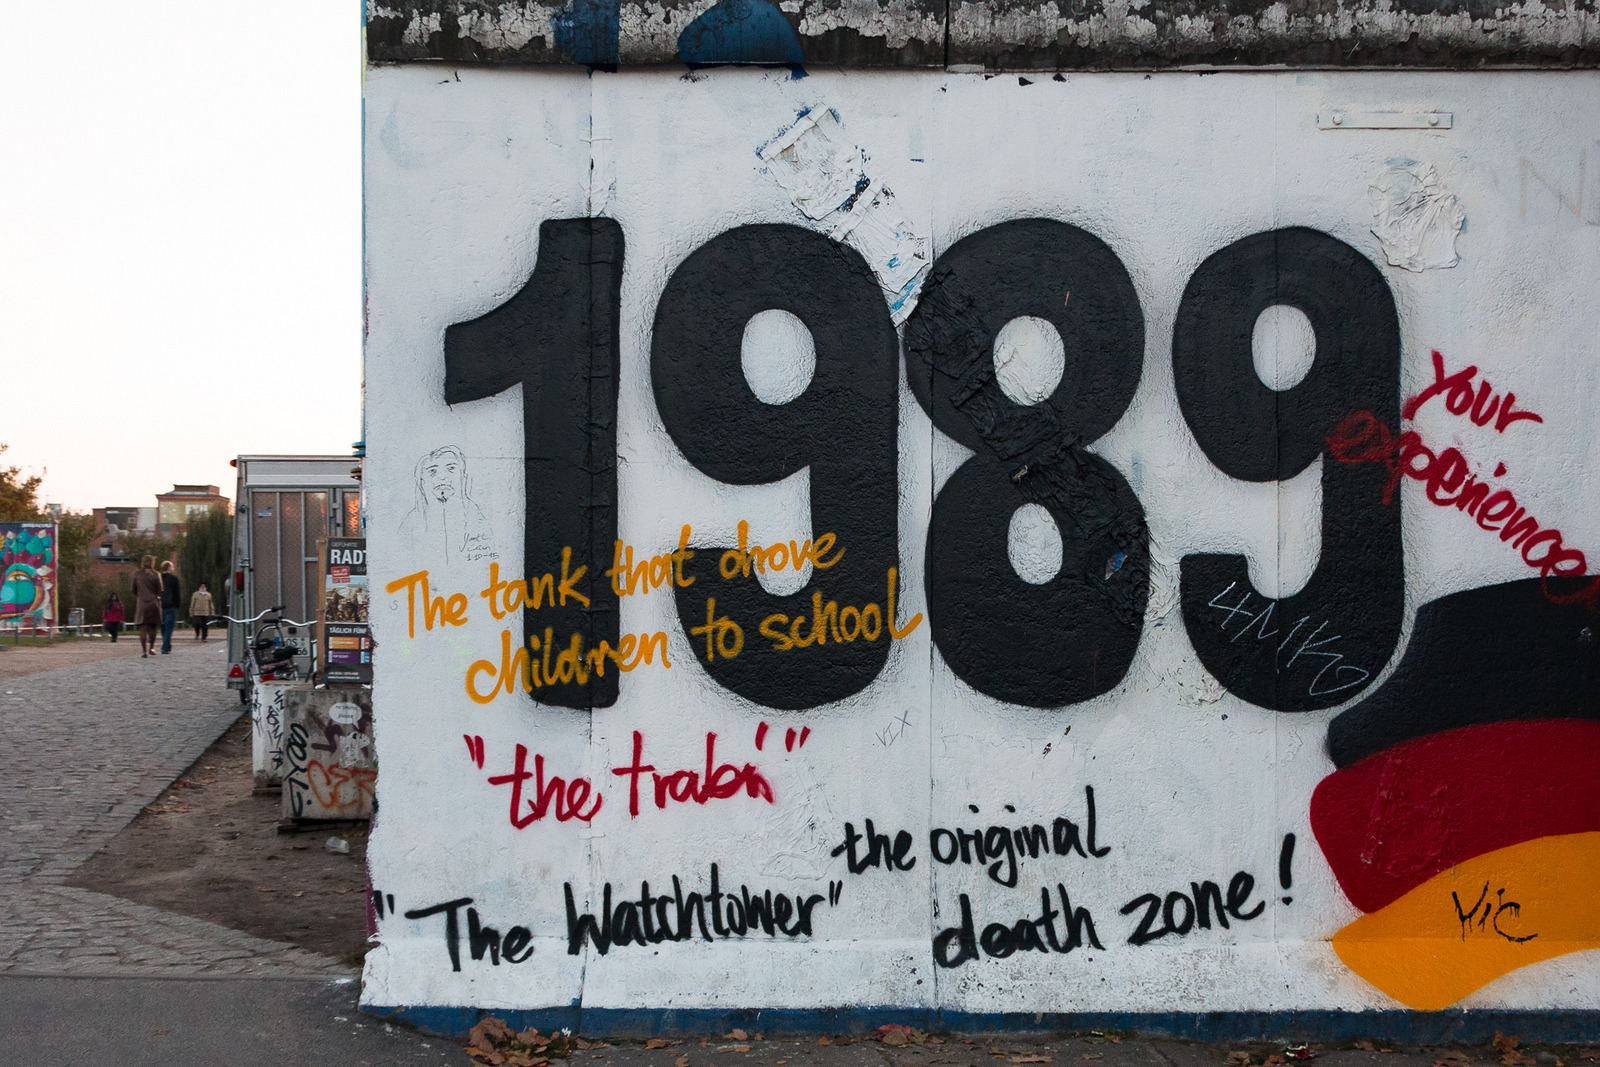 1989
Your
experience
The tank that drove
children to school
"the trabi"
"The Watchtower"
the original
death zone!
4MK2
VIX
Vic
RADT
TÄGLICH FÜNF
1-10-15